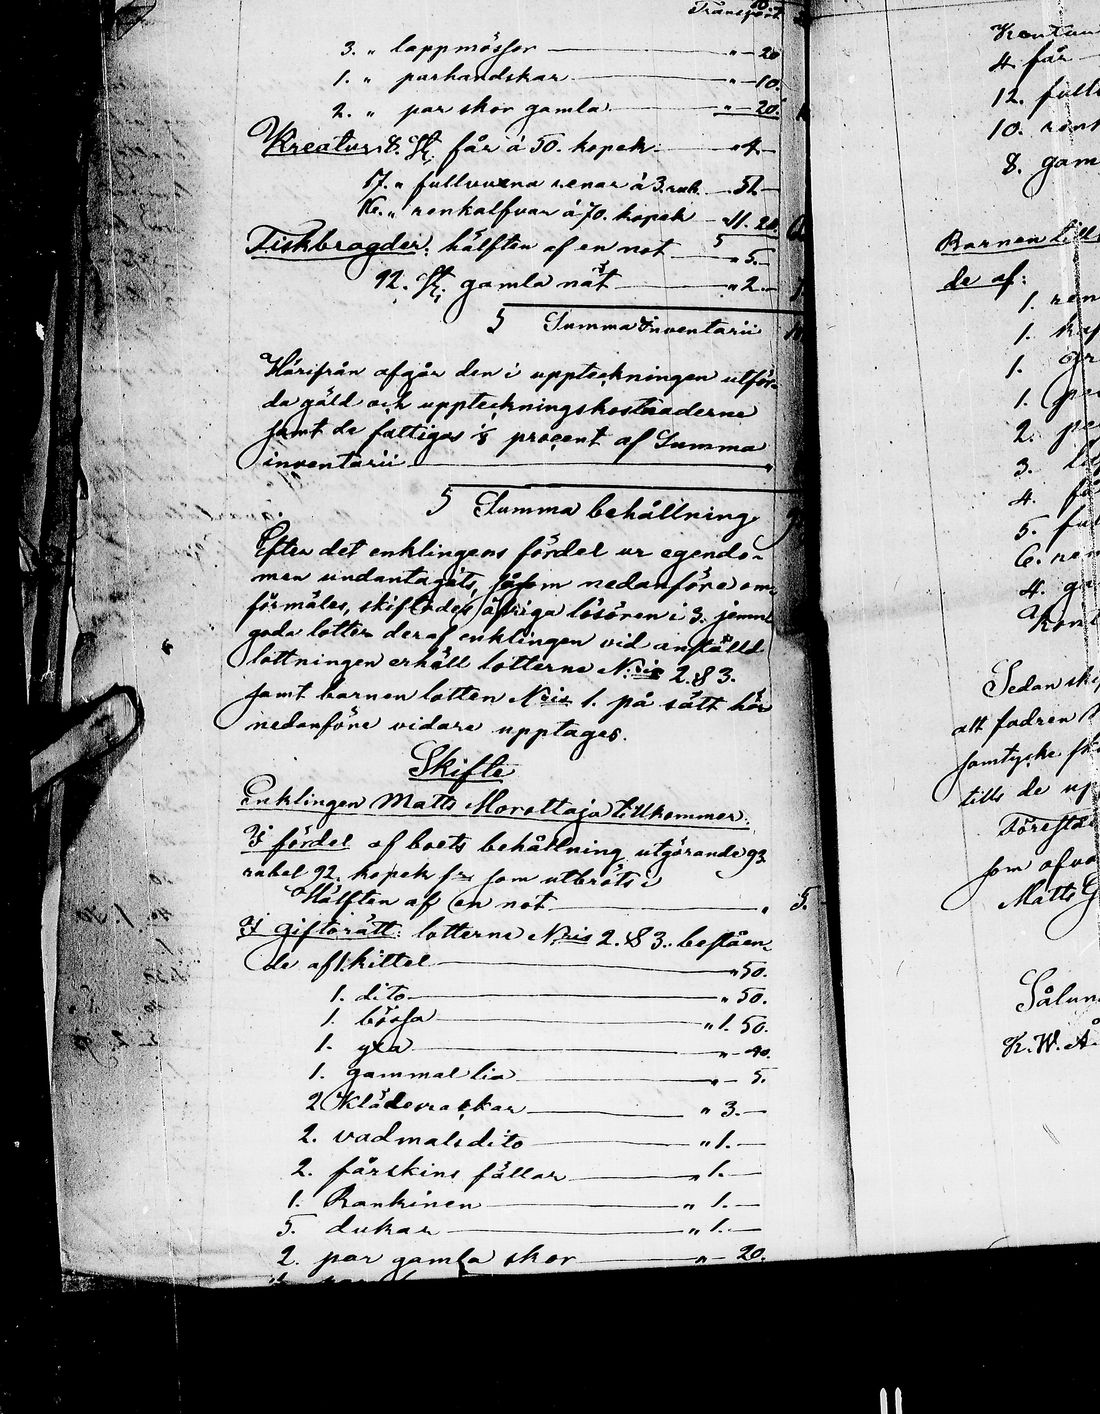 Transport
3. " lappmössor " — 20
1. " parhandskar " — 10.
2. " par skor gamla " — 20.
Kreatur: 8. St. får á 50. kopek " 4 —
17. " fullvuxna renar á 3. rub. " 51. —
16. " renkalfvar á 70. kopek " 11. 20.
Fiskbragder: hälften af en not " 5. —
12. St. gamla nät " 2. —
Summa Inventarii
Härifrån afgår den i uppteckningen utför-
da gäld och uppteckningskostnaderne
samt de fattigas 1/8 procent af Summa
inventarii
Summa behållning
Efter det enklingens fördel ur egendo-
men undantagits, såsom nedanföre om-
förmäles, skiftades öfriga lösören i 3. jemn-
goda lotter deraf enklingen vid anställd
lottningen erhöll lotterne N:ris 2. & 3.
samt barnen lotten N:ris 1. på sätt här
nedanföre vidare upptages.
Skifte
Enklingen Matts Morottaja tillkommer:
I fördel af boets behållning utgörande 93
rubel 92. kopek som utbröts i
Hälften af en not " 5.
I giftorätt: lotterne N:ris 2. & 3. beståen-
de af 1. kittel " 50.
1. dito " 50.
1. bössa " 1. 50.
1. yxa " — 40.
1. gammal lia " — 5.
2 Klädesrackar " 3. —
2. vadmals dito " 1. —
2. fårskins fällar " 1. —
1. Rankinen " 1. —
5. dukar " 1. —
2. par gamla skor " — 20.
4. får
12. full
10. renk
8. gam
Barnen till
de af:
1. ren
1.
1. gr
1.
2.
3.
4. få
5. ful
6. ren
4. ga
Kont
Sedan ski
att fadren
samtycke
tills de up
som ofva
Matts G
Sålun
K. W. Å